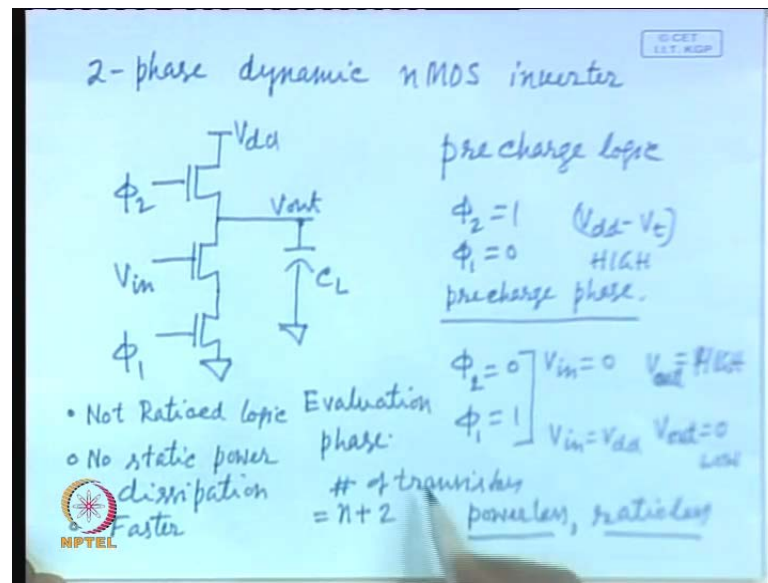 © CET
I.I.T. KGP
2-phase dynamic nMOS inverter
Vdd
ϕ2
Vout
Vin
CL
ϕ1
precharge logic
ϕ2 = 1 (Vdd - Vt)
ϕ1 = 0 HIGH
precharge phase.
ϕ2 = 0 Vin = 0 Vout = HIGH
ϕ1 = 1 Vin = Vdd Vout = 0
LOW
• Not Ratioed logic
No static power
dissipation
Faster
Evaluation
phase.
# of transistors
= n+2
powerless, ratioless
NPTEL